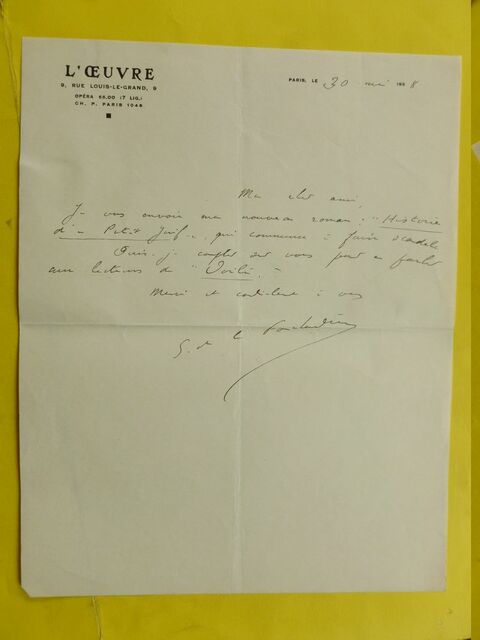 L'ŒUVRE
9, RUE LOUIS-LE-GRAND, 9
OPÉRA 65.00 (7 LIG.)
CH. P. PARIS 1046
PARIS, LE 30 mai 1938
Mon cher ami,
Je vous envoie mon nouveau roman : "Histoire
d'un Petit Juif", qui commence à faire scandale.
Puis-je compter sur vous pour en parler
aux lecteurs de "Voilà" ?
Merci et cordialement à vous
G. de la Fouchardière